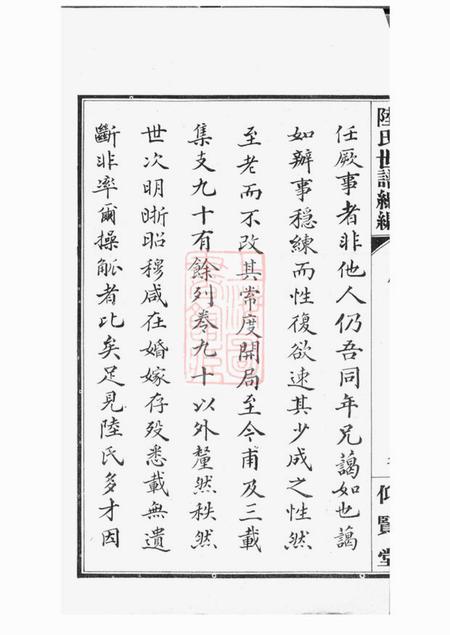 陸氏世譜續編
仰賢堂
任厥事者非他人仍吾同年兄藹如也藹
如辦事穩練而性復欲速其少成之性然
至老而不改其常度開局至今甫及三載
集支九十有餘列卷九十以外釐然秩然
世次明晰昭穆咸在婚嫁存歿悉載無遺
斷非率爾操觚者比矣足見陸氏多才因